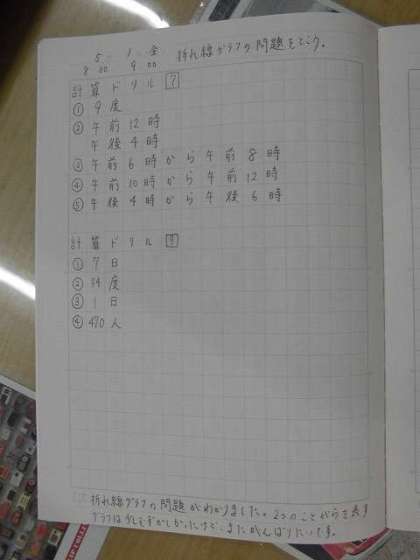 5. 1. 金 折れ線グラフの問題をとこう。
8:00 9:00
計算ドリル 7
① 9度
② 午前12時
午後4時
③ 午前6時から午前8時
④ 午前10時から午前12時
⑤ 午後4時から午後6時
計算ドリル 8
① 7日
② 34度
③ 1日
④ 470人
折れ線グラフの問題がわかりました。2つのことがらを表す
グラフは少しむずかしかったけど、またがんばりたいです。